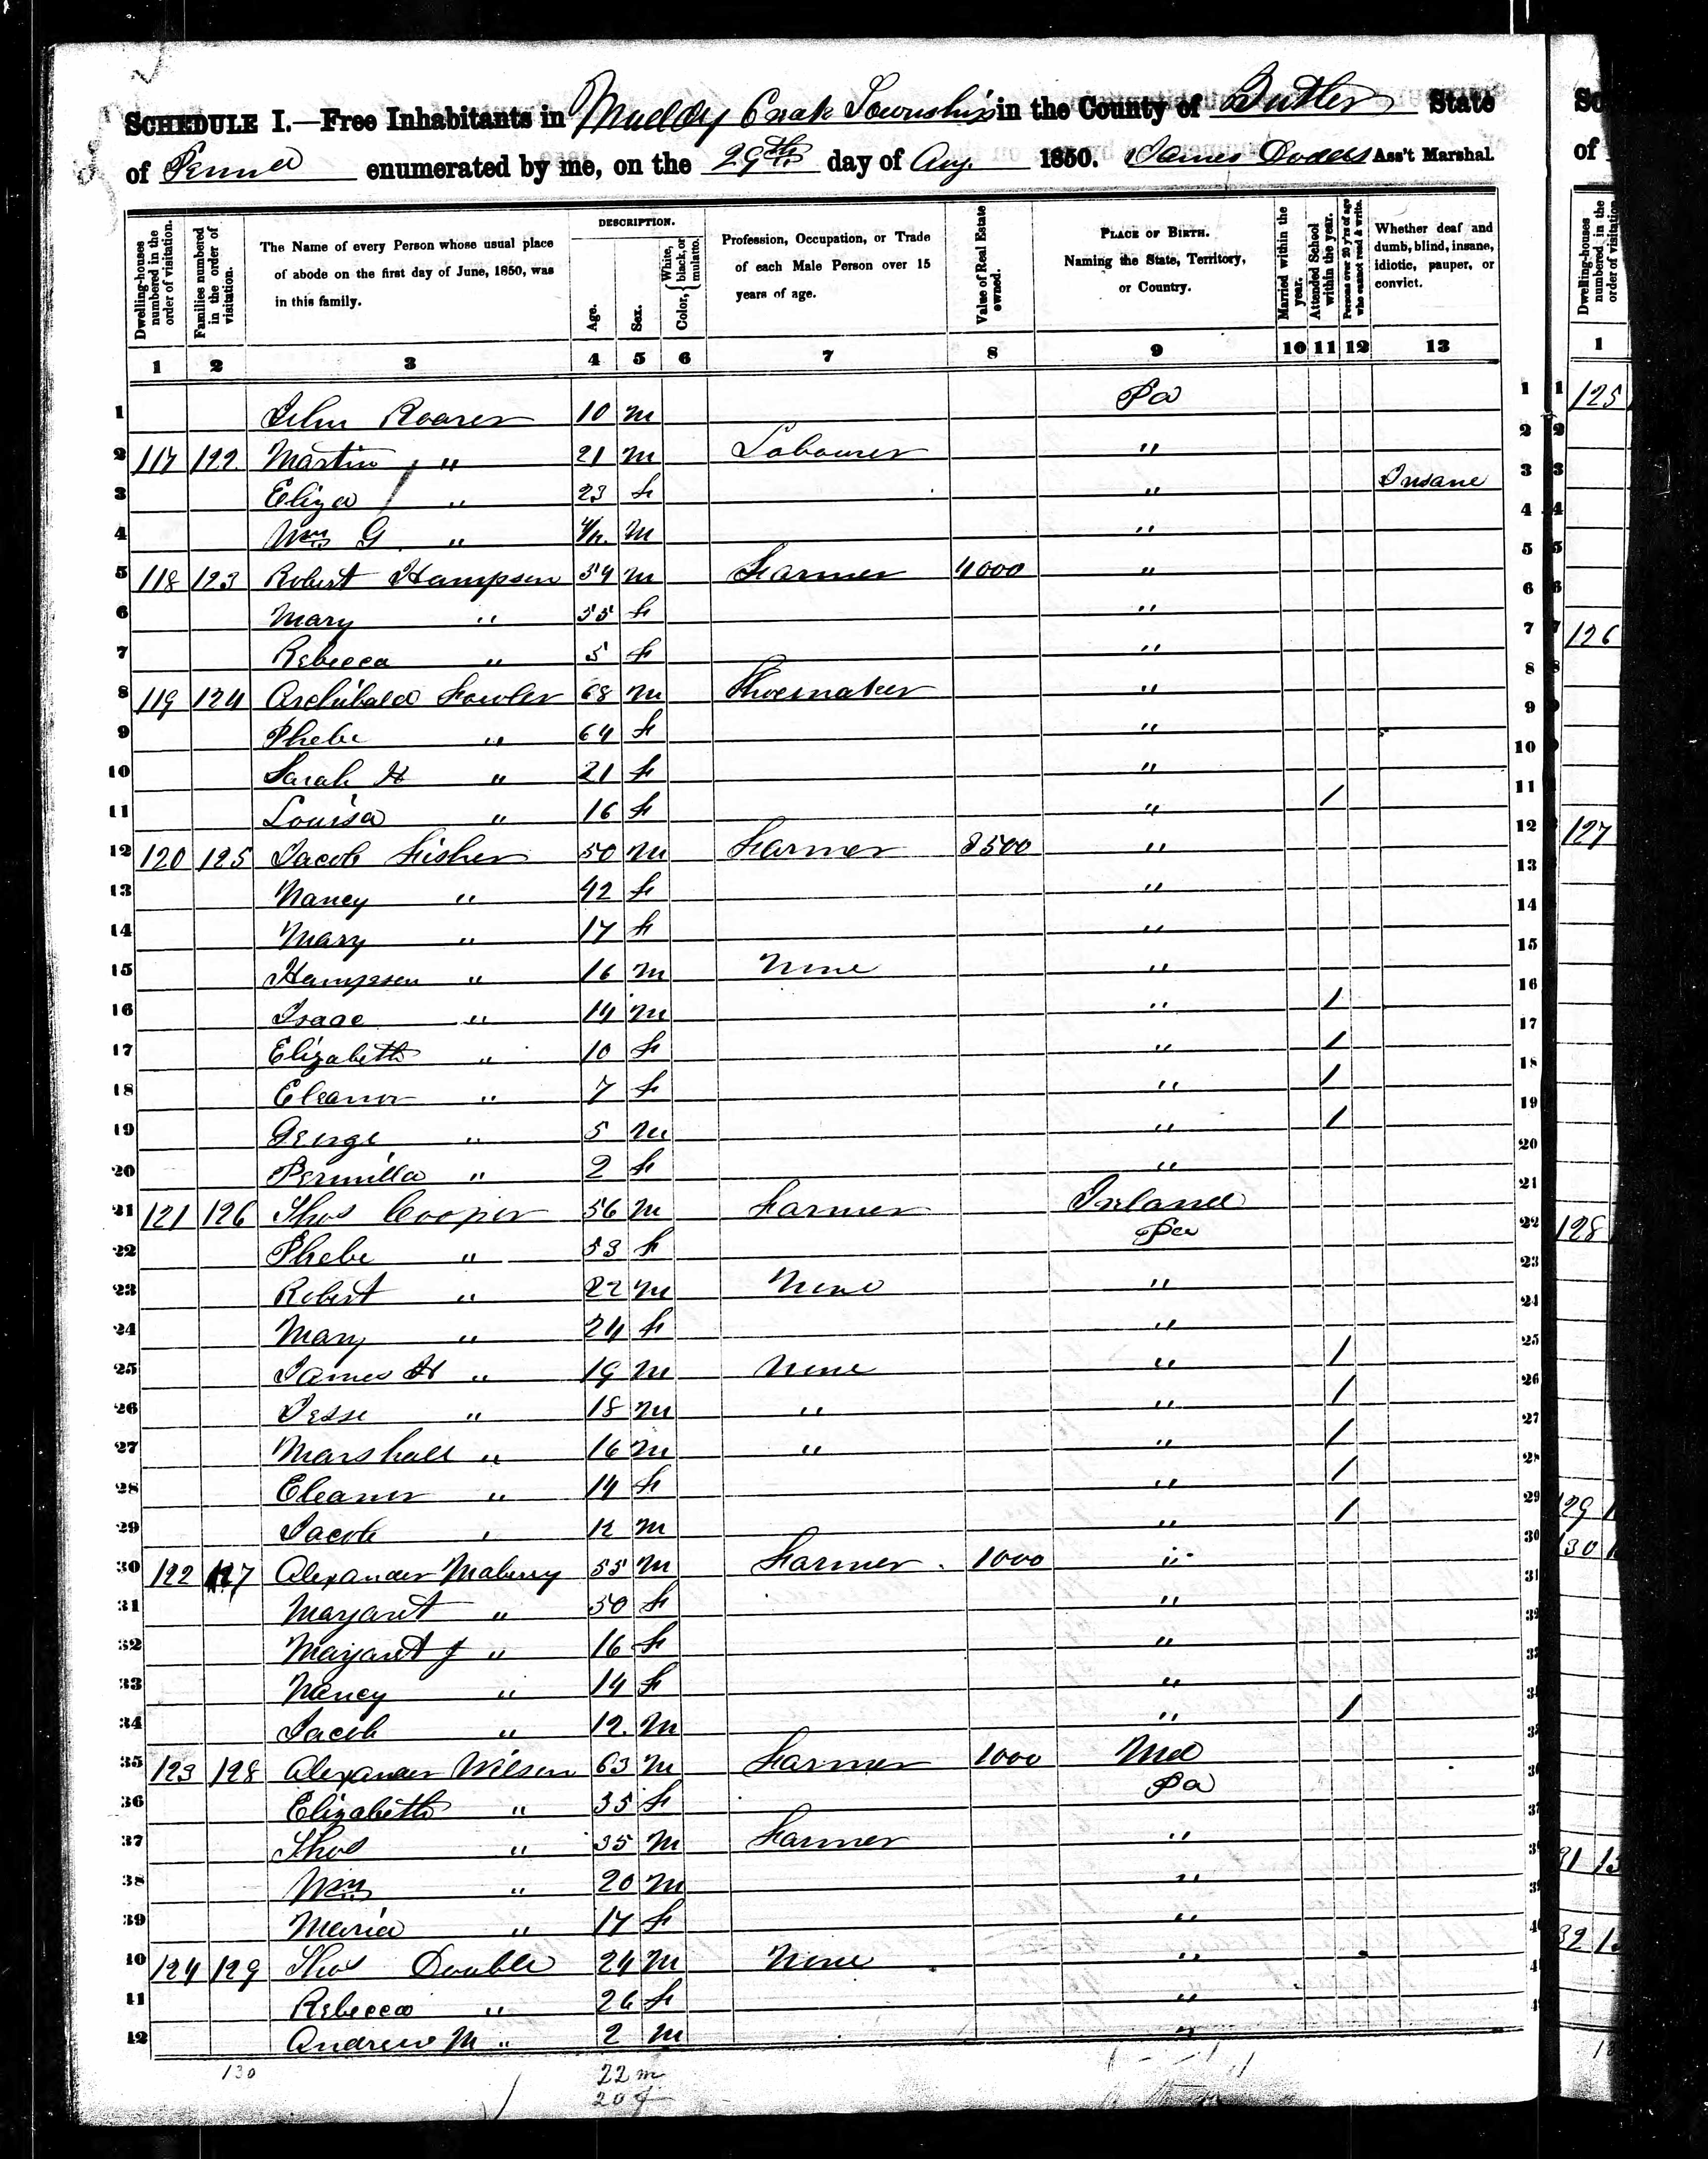 SCHEDULE I.—Free Inhabitants in Muddy Creek Township in the County of Butler State
of Penna enumerated by me, on the 29th day of Aug. 1850. James Dodds Ass't Marshal.
Dwelling-houses numbered in the order of visitation.
Families numbered in the order of visitation.
The Name of every Person whose usual place of abode on the first day of June, 1850, was in this family.
DESCRIPTION.
Age.
Sex.
Color, { White, black, or mulatto.
Profession, Occupation, or Trade of each Male Person over 15 years of age.
Value of Real Estate owned.
PLACE OF BIRTH. Naming the State, Territory, or Country.
Married within the year.
Attended School within the year.
Persons over 20 y'rs of age who cannot read & write.
Whether deaf and dumb, blind, insane, idiotic, pauper, or convict.
1 2 3 4 5 6 7 8 9 10 11 12 13
1 John Roarer 10 m Pa 1
2 117 122 Martin " 21 m Labourer " 2
3 Eliza " 23 f " Insane 3
4 Wm G " 4/12 m " 4
5 118 123 Robert Hampson 54 m Farmer 4000 " 5
6 Mary " 55 f " 6
7 Rebecca " 5 f " 7
8 119 124 Archibald Fowler 68 m Shoemaker " 8
9 Phebe " 64 f " 9
10 Sarah H " 21 f " 10
11 Louisa " 16 f " / 11
12 120 125 Jacob Fisher 50 m Farmer 3500 " 12
13 Nancy " 42 f " 13
14 Mary " 17 f " 14
15 Hampson " 16 m None " 15
16 Isaac " 14 m " / 16
17 Elizabeth " 10 f " / 17
18 Eleanor " 7 f " / 18
19 George " 5 m " / 19
20 Permilla " 2 f " 20
21 121 126 Thos Cooper 56 m Farmer Ireland 21
22 Phebe " 53 f Pa 22
23 Robert " 22 m None " 23
24 Mary " 24 f " 24
25 James H " 19 m None " / 25
26 Jesse " 18 m " " / 26
27 Marshall " 16 m " " / 27
28 Eleanor " 14 f " / 28
29 Jacob " 12 m " / 29
30 122 127 Alexander Maberry 55 m Farmer 1000 " 30
31 Margaret " 50 f "
32 Margaret J " 16 f "
33 Nancy " 14 f "
34 Jacob " 12 m " /
35 123 128 Alexander Wilson 63 m Farmer 1000 Md
36 Elizabeth " 35 f Pa
37 Thos " 35 m Farmer "
38 Wm " 20 m "
39 Maria " 17 f "
40 124 129 Thos Double 24 m None "
41 Rebecca " 26 f "
42 Andrew M " 2 m "
130
22 m
20 f
of
Dwelling-houses numbered in the order of visitation.
1
125
126
127
128